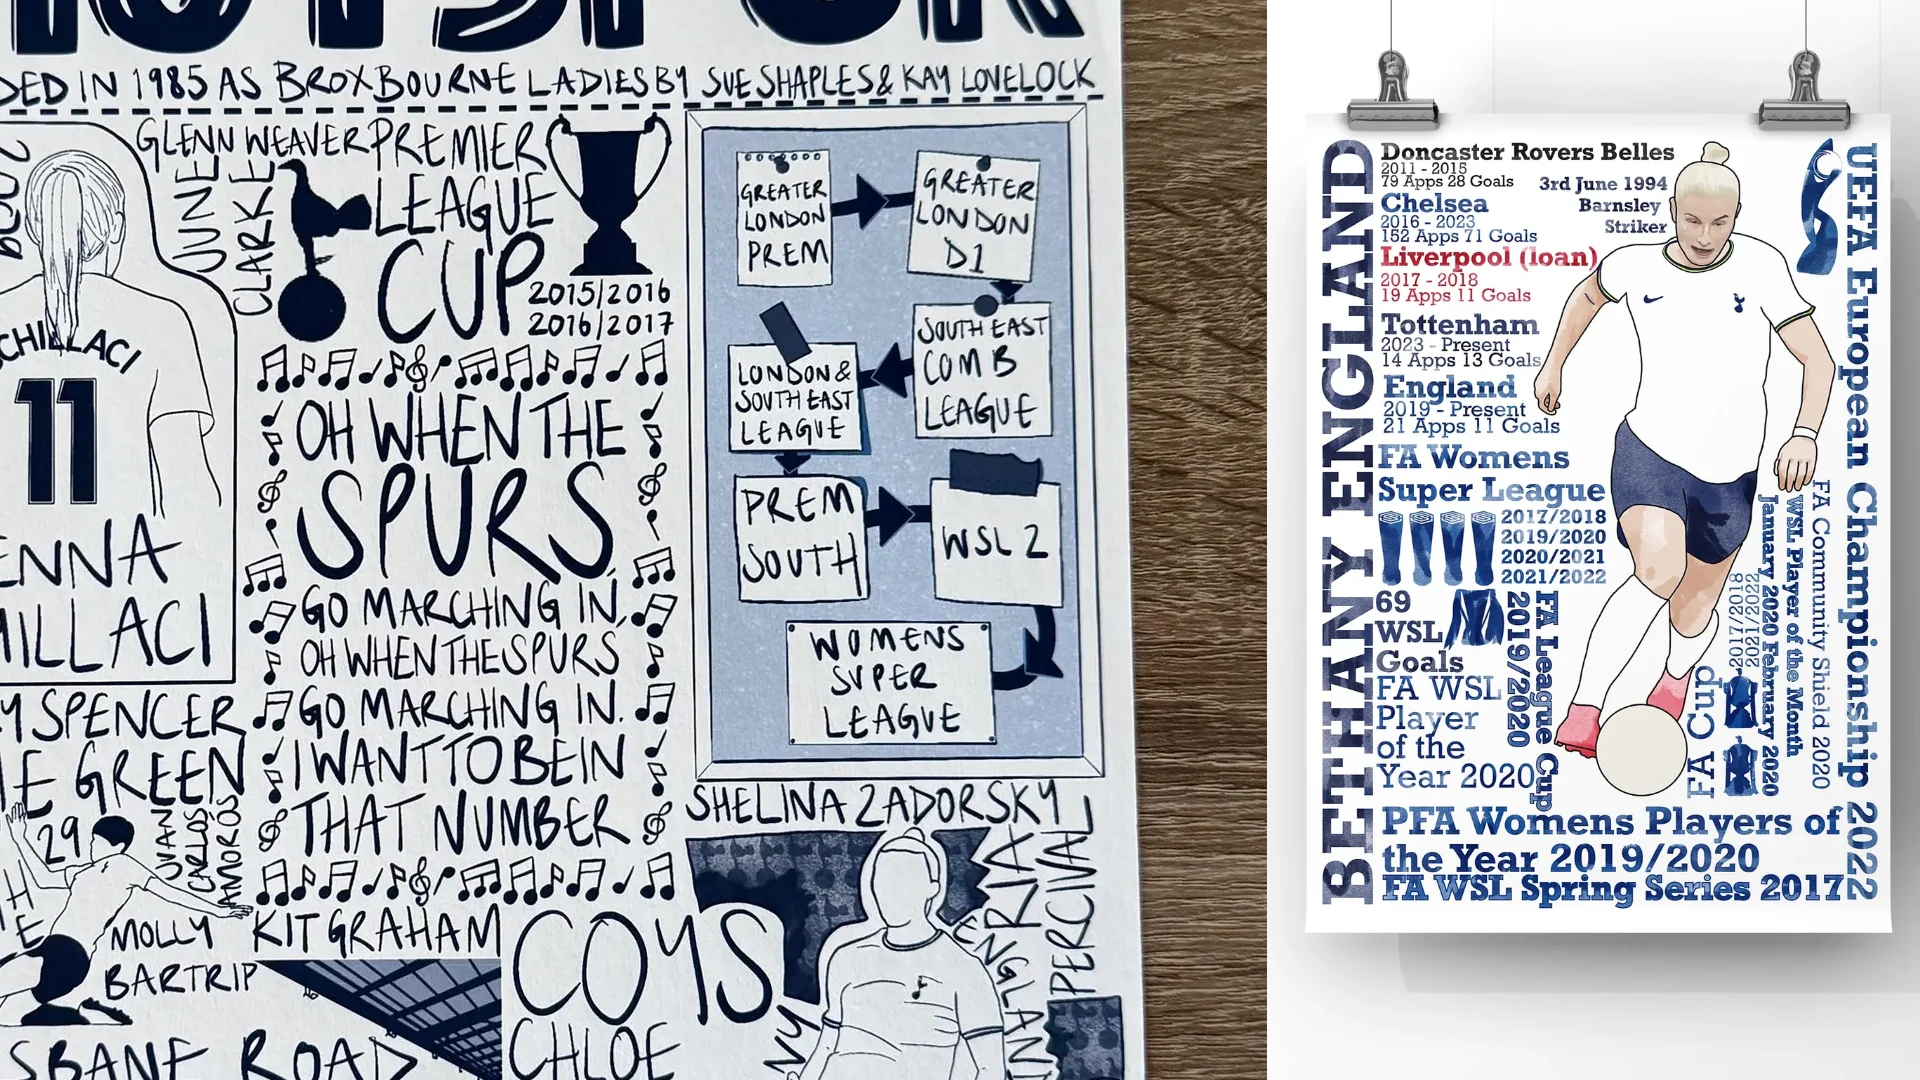 HOTSPUR
DED IN 1985 AS BROXBOURNE LADIES BY SUE SHAPLES & KAY LOVELOCK
GLENN WEAVER
JUNE
CLARKE
PREMIER
LEAGUE
CUP
2015/2016
2016/2017
CHILLACI
11
ENNA
HILLACI
Y SPENCER
IE GREEN
29
JUAN
CARLOS
AMORÓS
MOLLY
BARTRIP
OH WHEN THE
SPURS,
GO MARCHING IN,
OH WHEN THE SPURS
GO MARCHING IN.
I WANT TO BE IN
THAT NUMBER
KIT GRAHAM
COYS
CHLOE
SBANE ROAD
GREATER
LONDON
PREM
GREATER
LONDON
D1
SOUTH EAST
COMB
LEAGUE
LONDON &
SOUTH EAST
LEAGUE
PREM
SOUTH
WSL 2
WOMENS
SUPER
LEAGUE
SHELINA ZADORSKY
RIA
PERCIVAL
BETHANY ENGLAND
Doncaster Rovers Belles
2011 - 2015
79 Apps 28 Goals
3rd June 1994
Barnsley
Striker
Chelsea
2016 - 2023
152 Apps 71 Goals
Liverpool (loan)
2017 - 2018
19 Apps 11 Goals
Tottenham
2023 - Present
14 Apps 13 Goals
England
2019 - Present
21 Apps 11 Goals
FA Womens
Super League
2017/2018
2019/2020
2020/2021
2021/2022
69
WSL
Goals
FA WSL
Player
of the
Year 2020
FA League Cup
2019/2020
FA Cup
2017/2018
2021/2022
FA Community Shield 2020
WSL Player of the Month
January 2020 February 2020
UEFA European Championship 2022
PFA Womens Players of
the Year 2019/2020
FA WSL Spring Series 2017